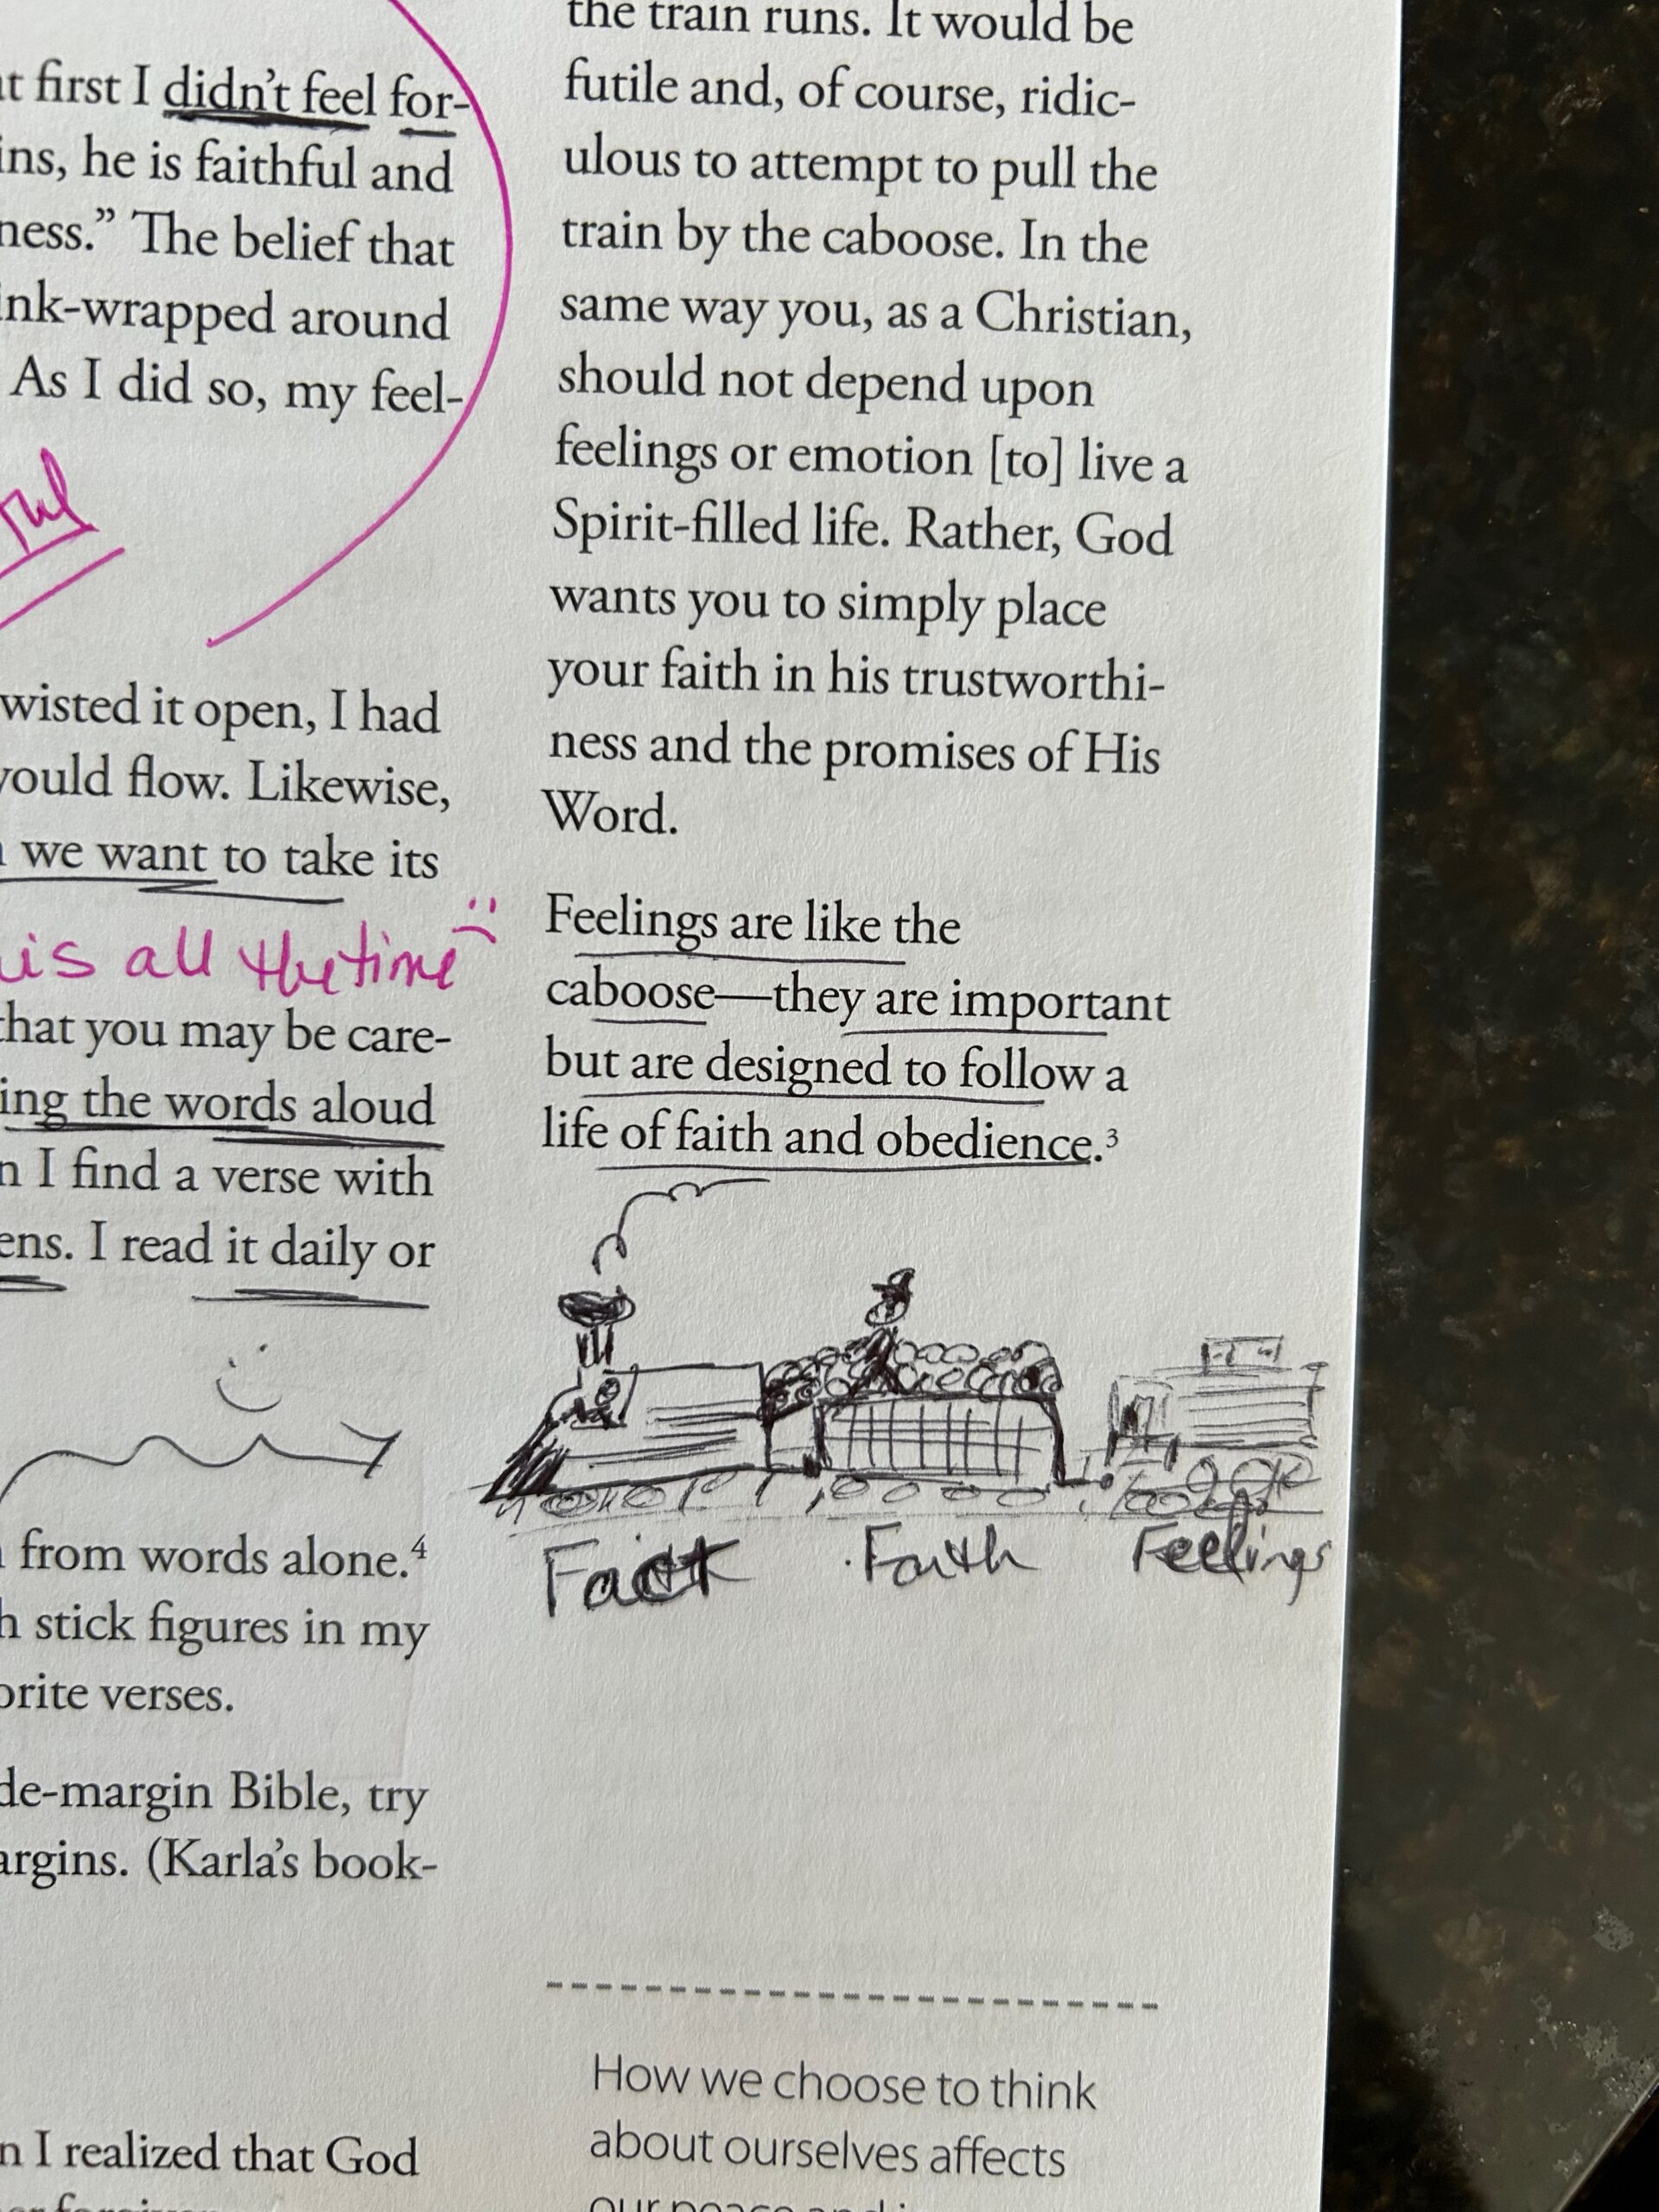 at first I didn't feel for-
ins, he is faithful and
ness.” The belief that
ink-wrapped around
As I did so, my feel-
wisted it open, I had
would flow. Likewise,
we want to take its
is all the time
that you may be care-
ing the words aloud
n I find a verse with
ens. I read it daily or
from words alone.⁴
h stick figures in my
orite verses.
de-margin Bible, try
argins. (Karla’s book-
n I realized that God
the train runs. It would be
futile and, of course, ridic-
ulous to attempt to pull the
train by the caboose. In the
same way you, as a Christian,
should not depend upon
feelings or emotion [to] live a
Spirit-filled life. Rather, God
wants you to simply place
your faith in his trustworthi-
ness and the promises of His
Word.
Feelings are like the
caboose—they are important
but are designed to follow a
life of faith and obedience.³
Fact Faith Feelings
How we choose to think
about ourselves affects
our peace and